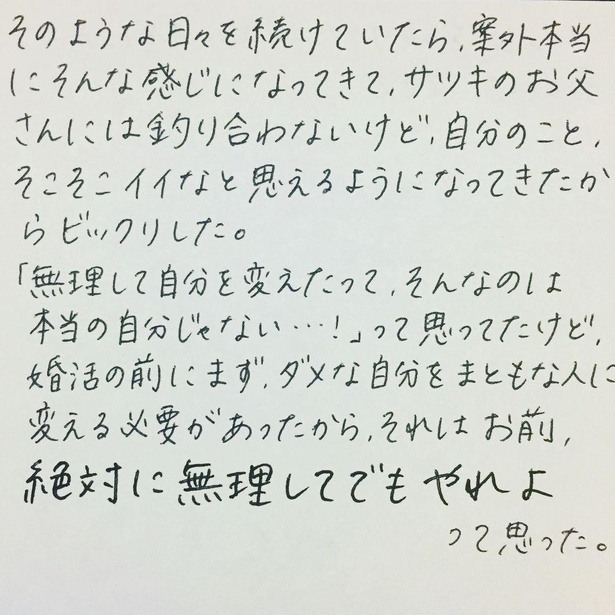 そのような日々を続けていたら、案外本当
にそんな感じになってきて、サツキのお父
さんには釣り合わないけど、自分のこと、
そこそこイイなと思えるようになってきたか
らビックリした。
「無理して自分を変えたって、そんなのは
本当の自分じゃない…！」って思ってたけど、
婚活の前にまず、ダメな自分をまともな人に
変える必要があったから、それはお前、
絶対に無理してでもやれよ
って思った。